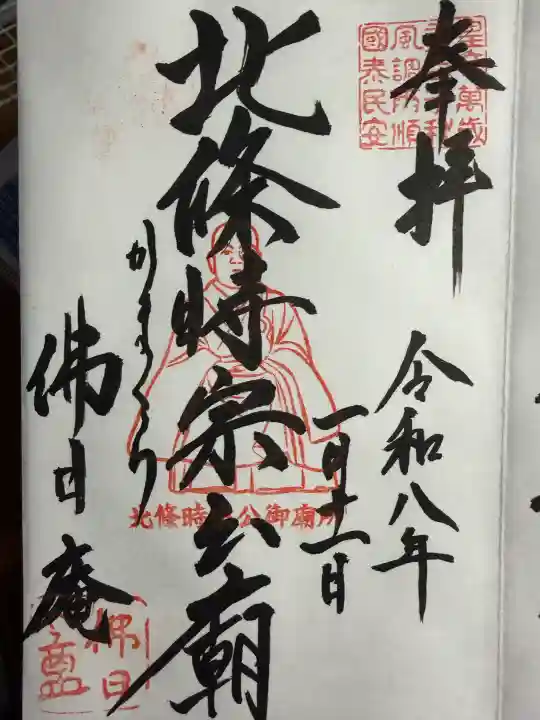 奉拝
令和八年
一月十一日
北條時宗公廟
かまくら
佛日庵
皇萬歳
風調雨順
國泰民安
北條時 公御廟所
佛日